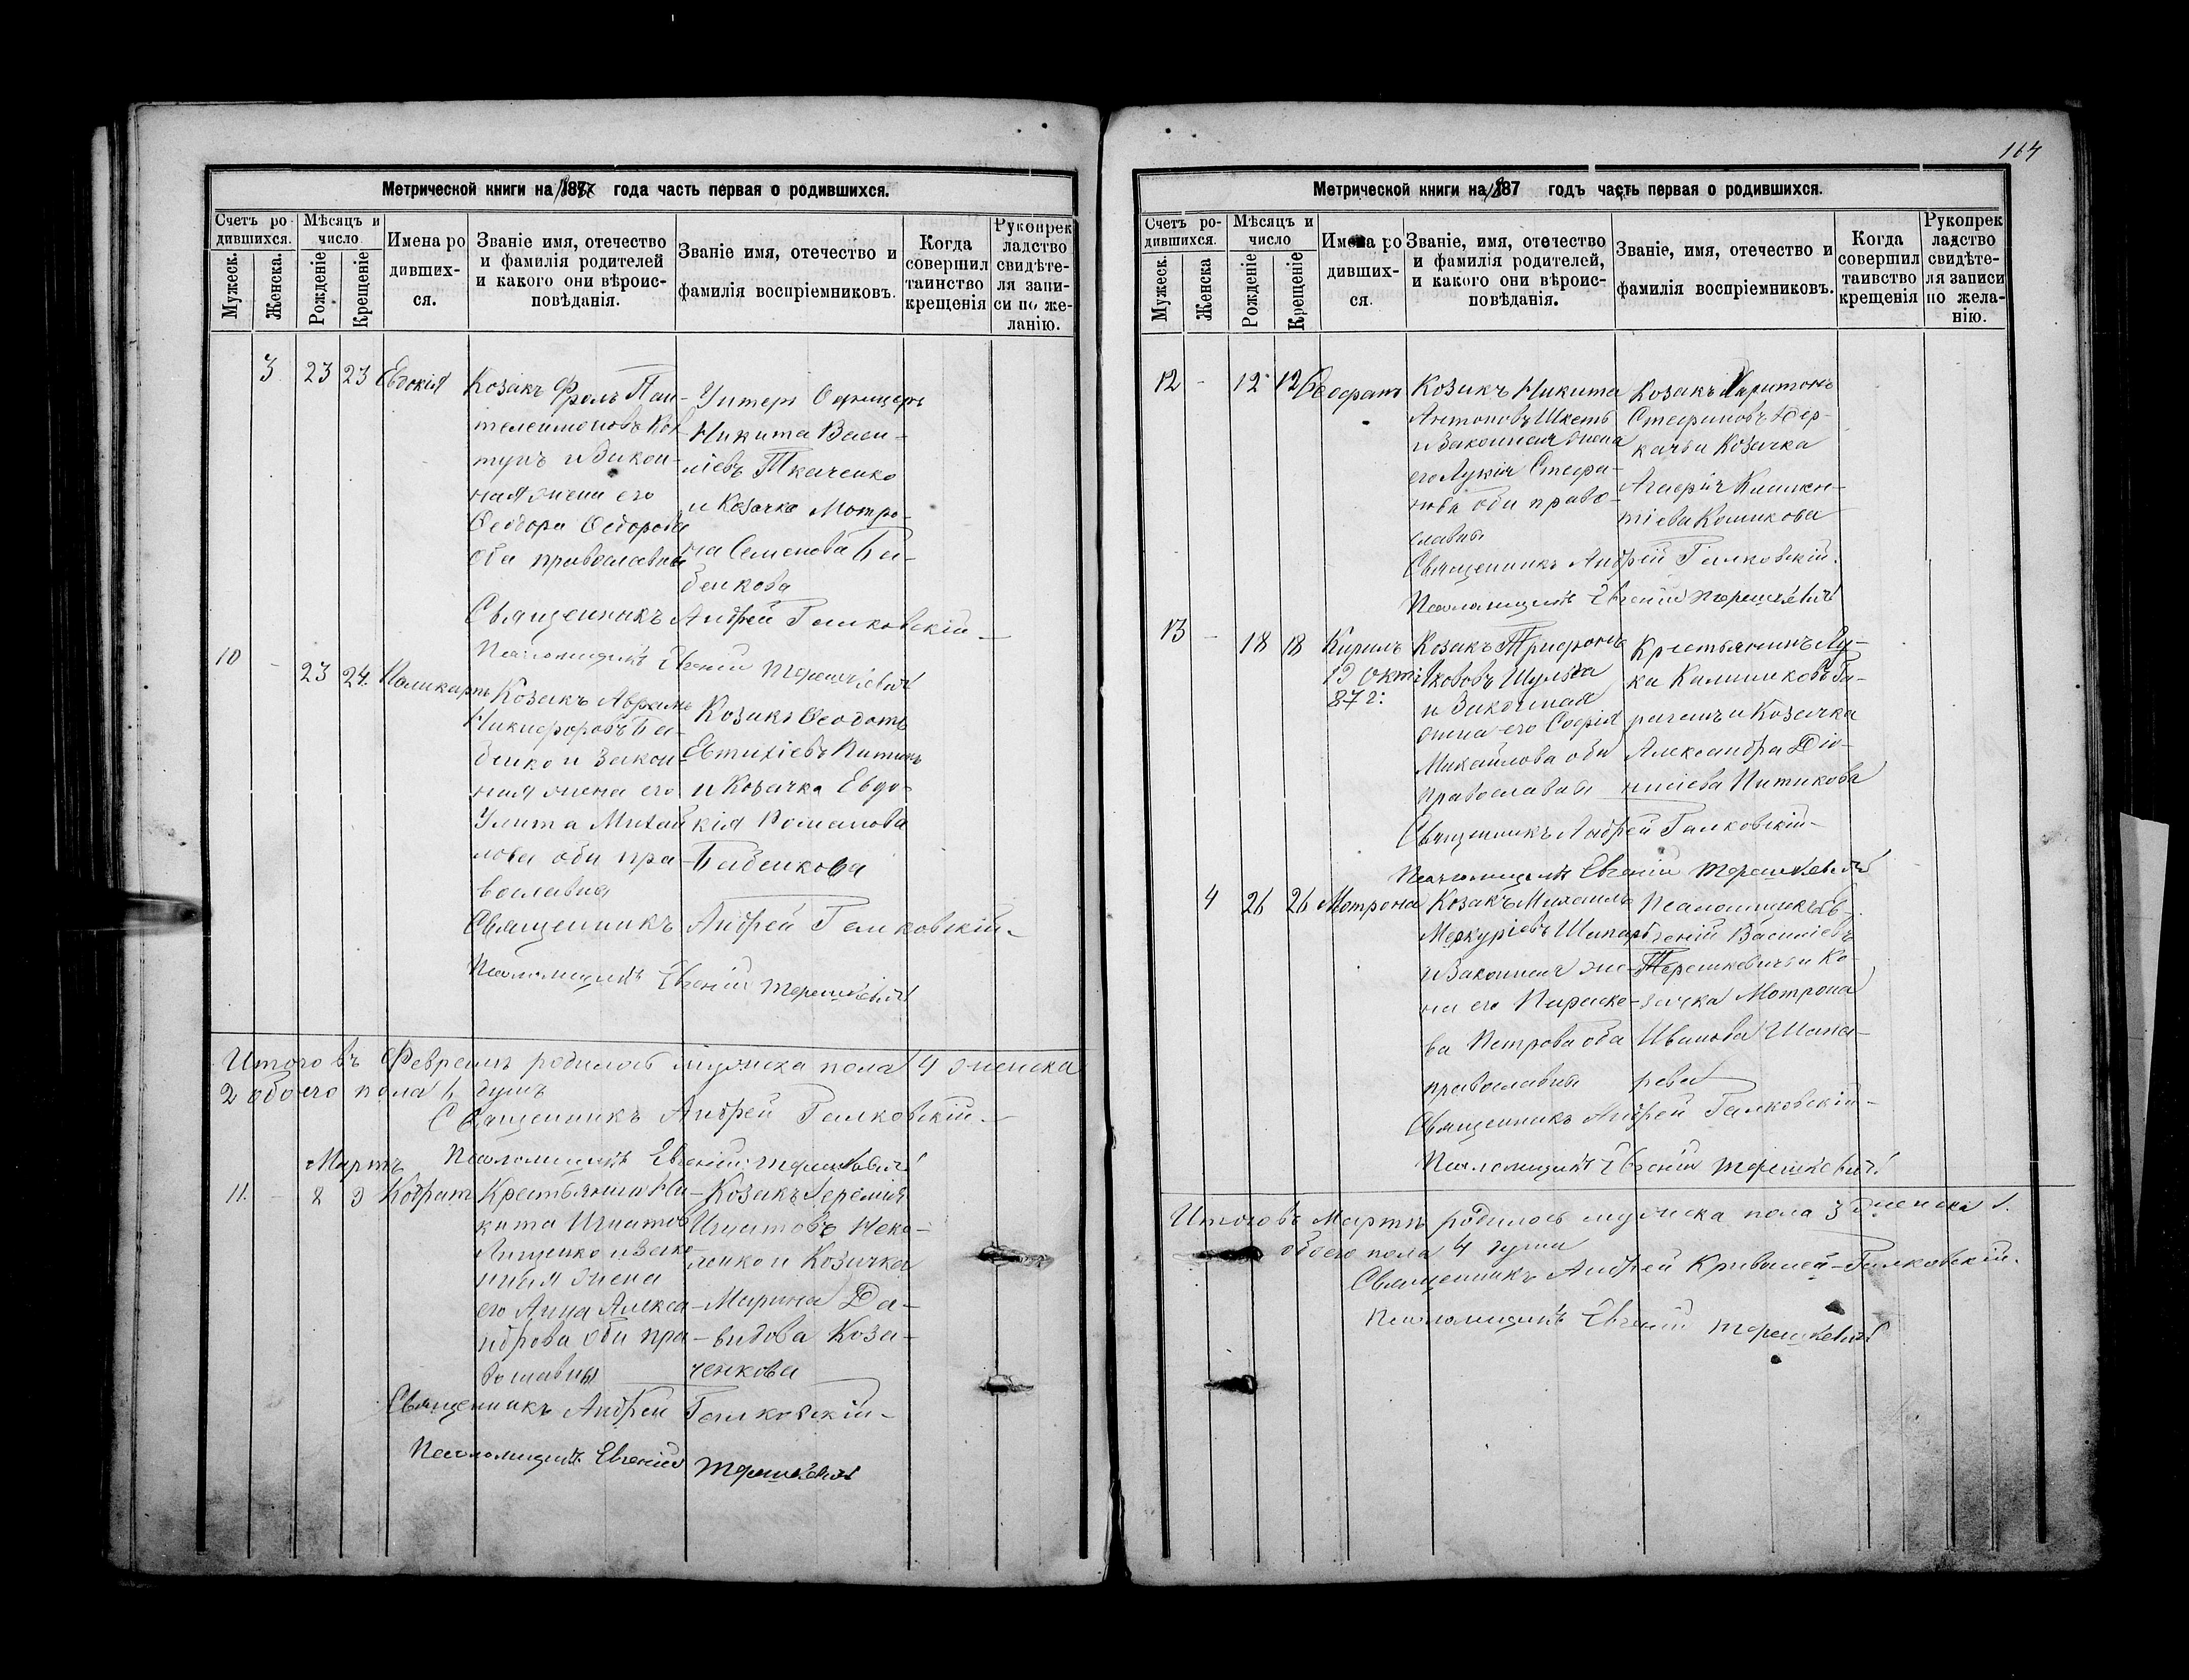 Метрической книги на 187 года часть первая о родившихся.
Счетъ ро-
дившихся.
Мужеск.
Женска.
Мѣсяцъ и
число.
Рожденіе
Крещеніе
Имена ро
дивших-
ся.
Званіе имя, отечество
и фамилія родителей
и какого они вѣроис-
повѣданія.
Званіе имя, отечество и
фамилія воспріемниковъ.
Когда
совершил
таинство
крещенія
Рукопрек
ладство
свидѣте-
ля запи-
си по же-
ланію.
3 23 23 Евдокія
Козакъ Фролъ Пан-
телеимоновъ Ков
тунъ и Закон-
ная жена его
Феодора Федорова
оба православны
Унтеръ Офицеръ
Никита Васи-
ліевъ Ткаченко
и Козачка Мотро-
на Семенова Ба-
бенкова
Священникъ Андрей Галковскій
Псаломщикъ Евгеній Терешкевичъ
10 - 23 24 Поликарпъ
Козакъ Аврамъ
Никифоровъ Ба-
бенко и Закон-
ная жена его
Улита Михай
лова оба пра-
вославны
Козакъ Феодотъ
Евтихіевъ Питикъ
и Козачка Евдо-
кія Романова
Бабенкова
Священникъ Андрей Галковскій
Псаломщикъ Евгеній Терешкевичъ
Итого въ Февралѣ родилось мужска пола 4 женска
2 обоего пола 6 душъ
Священникъ Андрей Галковскій
Псаломщикъ Евгеній Терешкевичъ
Мартъ
11. - 2 3 Кодратъ
Крестьянинъ Ни-
кита Игнатов
Лященко и Зако
нная жена
его Анна Алекса-
ндрова оба пра-
вославны
Козакъ Іеремія
Игнатовъ
и Козачка
Марина Да-
видова Коза-
ченкова
Священникъ Андрей Галковскій
Псаломщикъ Евгеній Терешкевичъ
164
Метрической книги на 187 годъ часть первая о родившихся.
Счетъ ро-
дившихся.
Мужеск.
Женска
Мѣсяцъ и
число
Рожденіе
Крещеніе
Имена ро
дивших-
ся.
Званіе, имя, отечество
и фамилія родителей,
и какого они вѣроис-
повѣданія.
Званіе, имя, отечество и
фамилія воспріемниковъ.
Когда
совершил
таивство
крещенія
Рукопрек
ладство
свидѣте-
ля записи
по жела-
нію.
12 - 12 12 Феофанъ
Козакъ Никита
Антоновъ
и Законная жена
его Лукія Стефа-
нова оба право-
славны
Козакъ Харитонъ
Стефановъ Дер-
качъ и Козачка
Агафія Климен-
тіева Комикова
Священникъ Андрей Галковскій
Псаломщикъ Евгеній Терешкевичъ
13 - 18 18 Кирилъ
Козакъ Трифонъ
Якововъ Шульга
и Законная
жена его Софія
Михайлова оба
православны
Крестьянинъ Лу-
ка Калинниковъ Га-
рагашъ и Козачка
Александра Діо-
нисіева Питикова
Священникъ Андрей Галковскій
Псаломщикъ Евгеній Терешкевичъ
4 26 26 Мотрона
Козакъ Михаилъ
Меркуріевъ Шапарь
и Законная же-
на его Параске-
ва Петрова оба
православны
Псаломщикъ Ев-
геній Василіевъ
Терешкевичъ и Ко-
зачка Мотрона
Иванова Шапа-
рева
Священникъ Андрей Галковскій
Псаломщикъ Евгеній Терешкевичъ
Итого въ Мартѣ родилось мужска пола 3 женска 1.
обоего пола 4 души
Священникъ Андрей Галковскій.
Псаломщикъ Евгеній Терешкевичъ